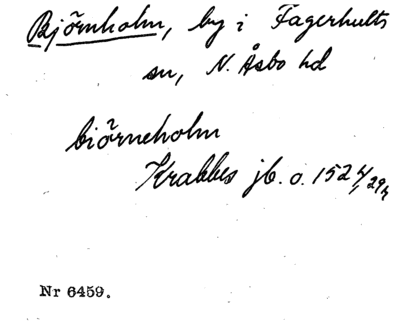 Björnholm, by i Fagerhults
sn, N. Åsbo hd
biörneholm
Krabbes jb. o. 1524/29,
Nr 6459.